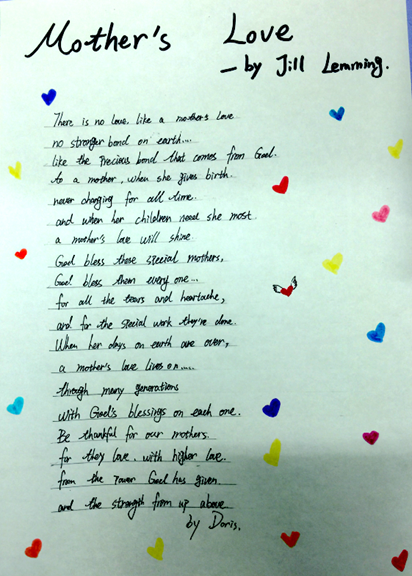 Mother's Love
— by Jill Lemming.
There is no love, like a mother's love
no stronger bond on earth....
like the precious bond that comes from God.
to a mother, when she gives birth.
never changing for all time.
and when her children need she most
a mother's love will shine.
God bless these special mothers,
God bless them every one...
for all the tears and heartache,
and for the special work they're done.
When her days on earth are over,
a mother's love lives on.....
through many generations
with God's blessings on each one.
Be thankful for our mothers.
for they love. with higher love.
from the power God has given.
and the strength from up above
by Doris.